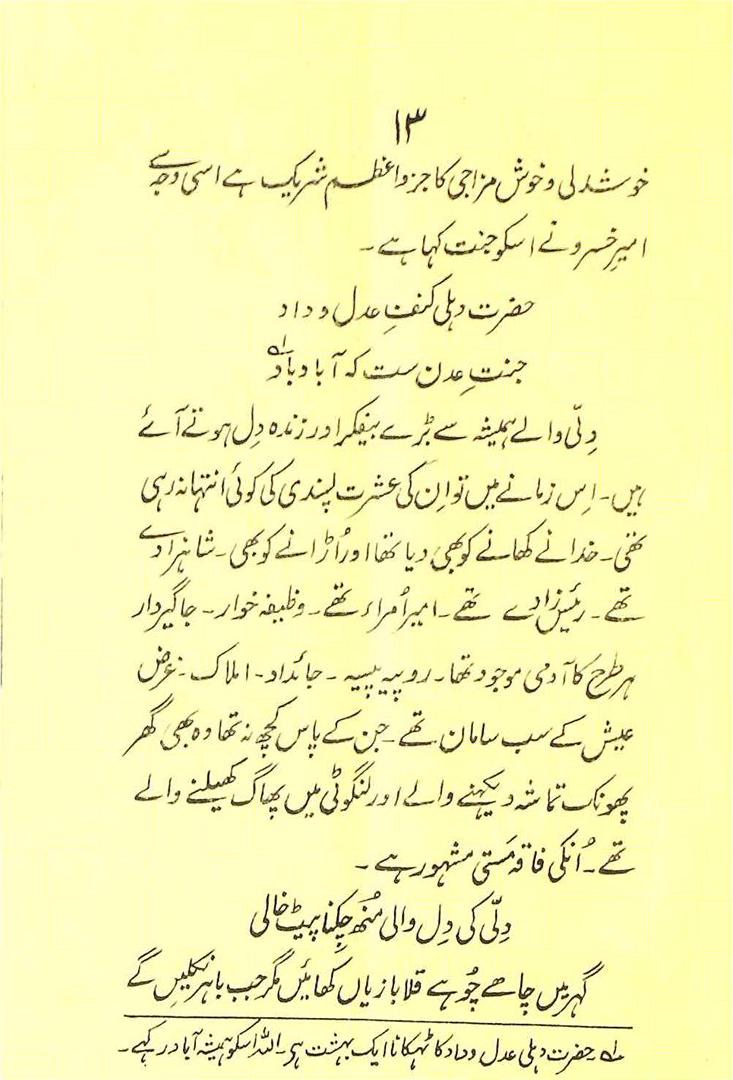 ۱۳
خوشدلی و خوش مزاجی کا جزو اعظم شریک ہے اسی وجہ سے
امیرِ خسرو نے اسکو جنت کہا ہے۔
حضرت دہلی کنفِ عدل و داد
جنتِ عدن ست کہ آباد باد ۱؎
دِلّی والے ہمیشہ سے بڑے بیفکر اور زندہ دِل ہوتے آئے
ہیں۔ اِس زمانے میں تو اِن کی عشرت پسندی کی کوئی انتہا نہ رہی
تھی۔ خدا نے کھانے کو بھی دیا تھا اور اُڑانے کو بھی۔ شاہزادے
تھے۔ رئیس زادے تھے۔ امیر اُمراء تھے۔ وظیفہ خوار۔ جاگیردار
ہر طرح کا آدمی موجود تھا۔ روپیہ پیسہ۔ جائداد۔ املاک۔ غرض
عیش کے سب سامان تھے۔ جن کے پاس کچھ نہ تھا وہ بھی گھر
پھونک تماشہ دیکہنے والے اور لنگوٹی میں پھاگ کھیلنے والے
تھے۔ اُنکی فاقہ مَستی مشہور ہے۔
دِلّی کی دِل والی مُنھ چِکنا پیٹ خالی
گہر میں چاھے چُوہے قلابازیاں کھائیں مگر جب باہر نکلیں گے
۱؎ حضرت دہلی عدل و داد کا ٹہکانا ایک بہشت ہی۔ اللہ اسکو ہمیشہ آباد رکہے۔